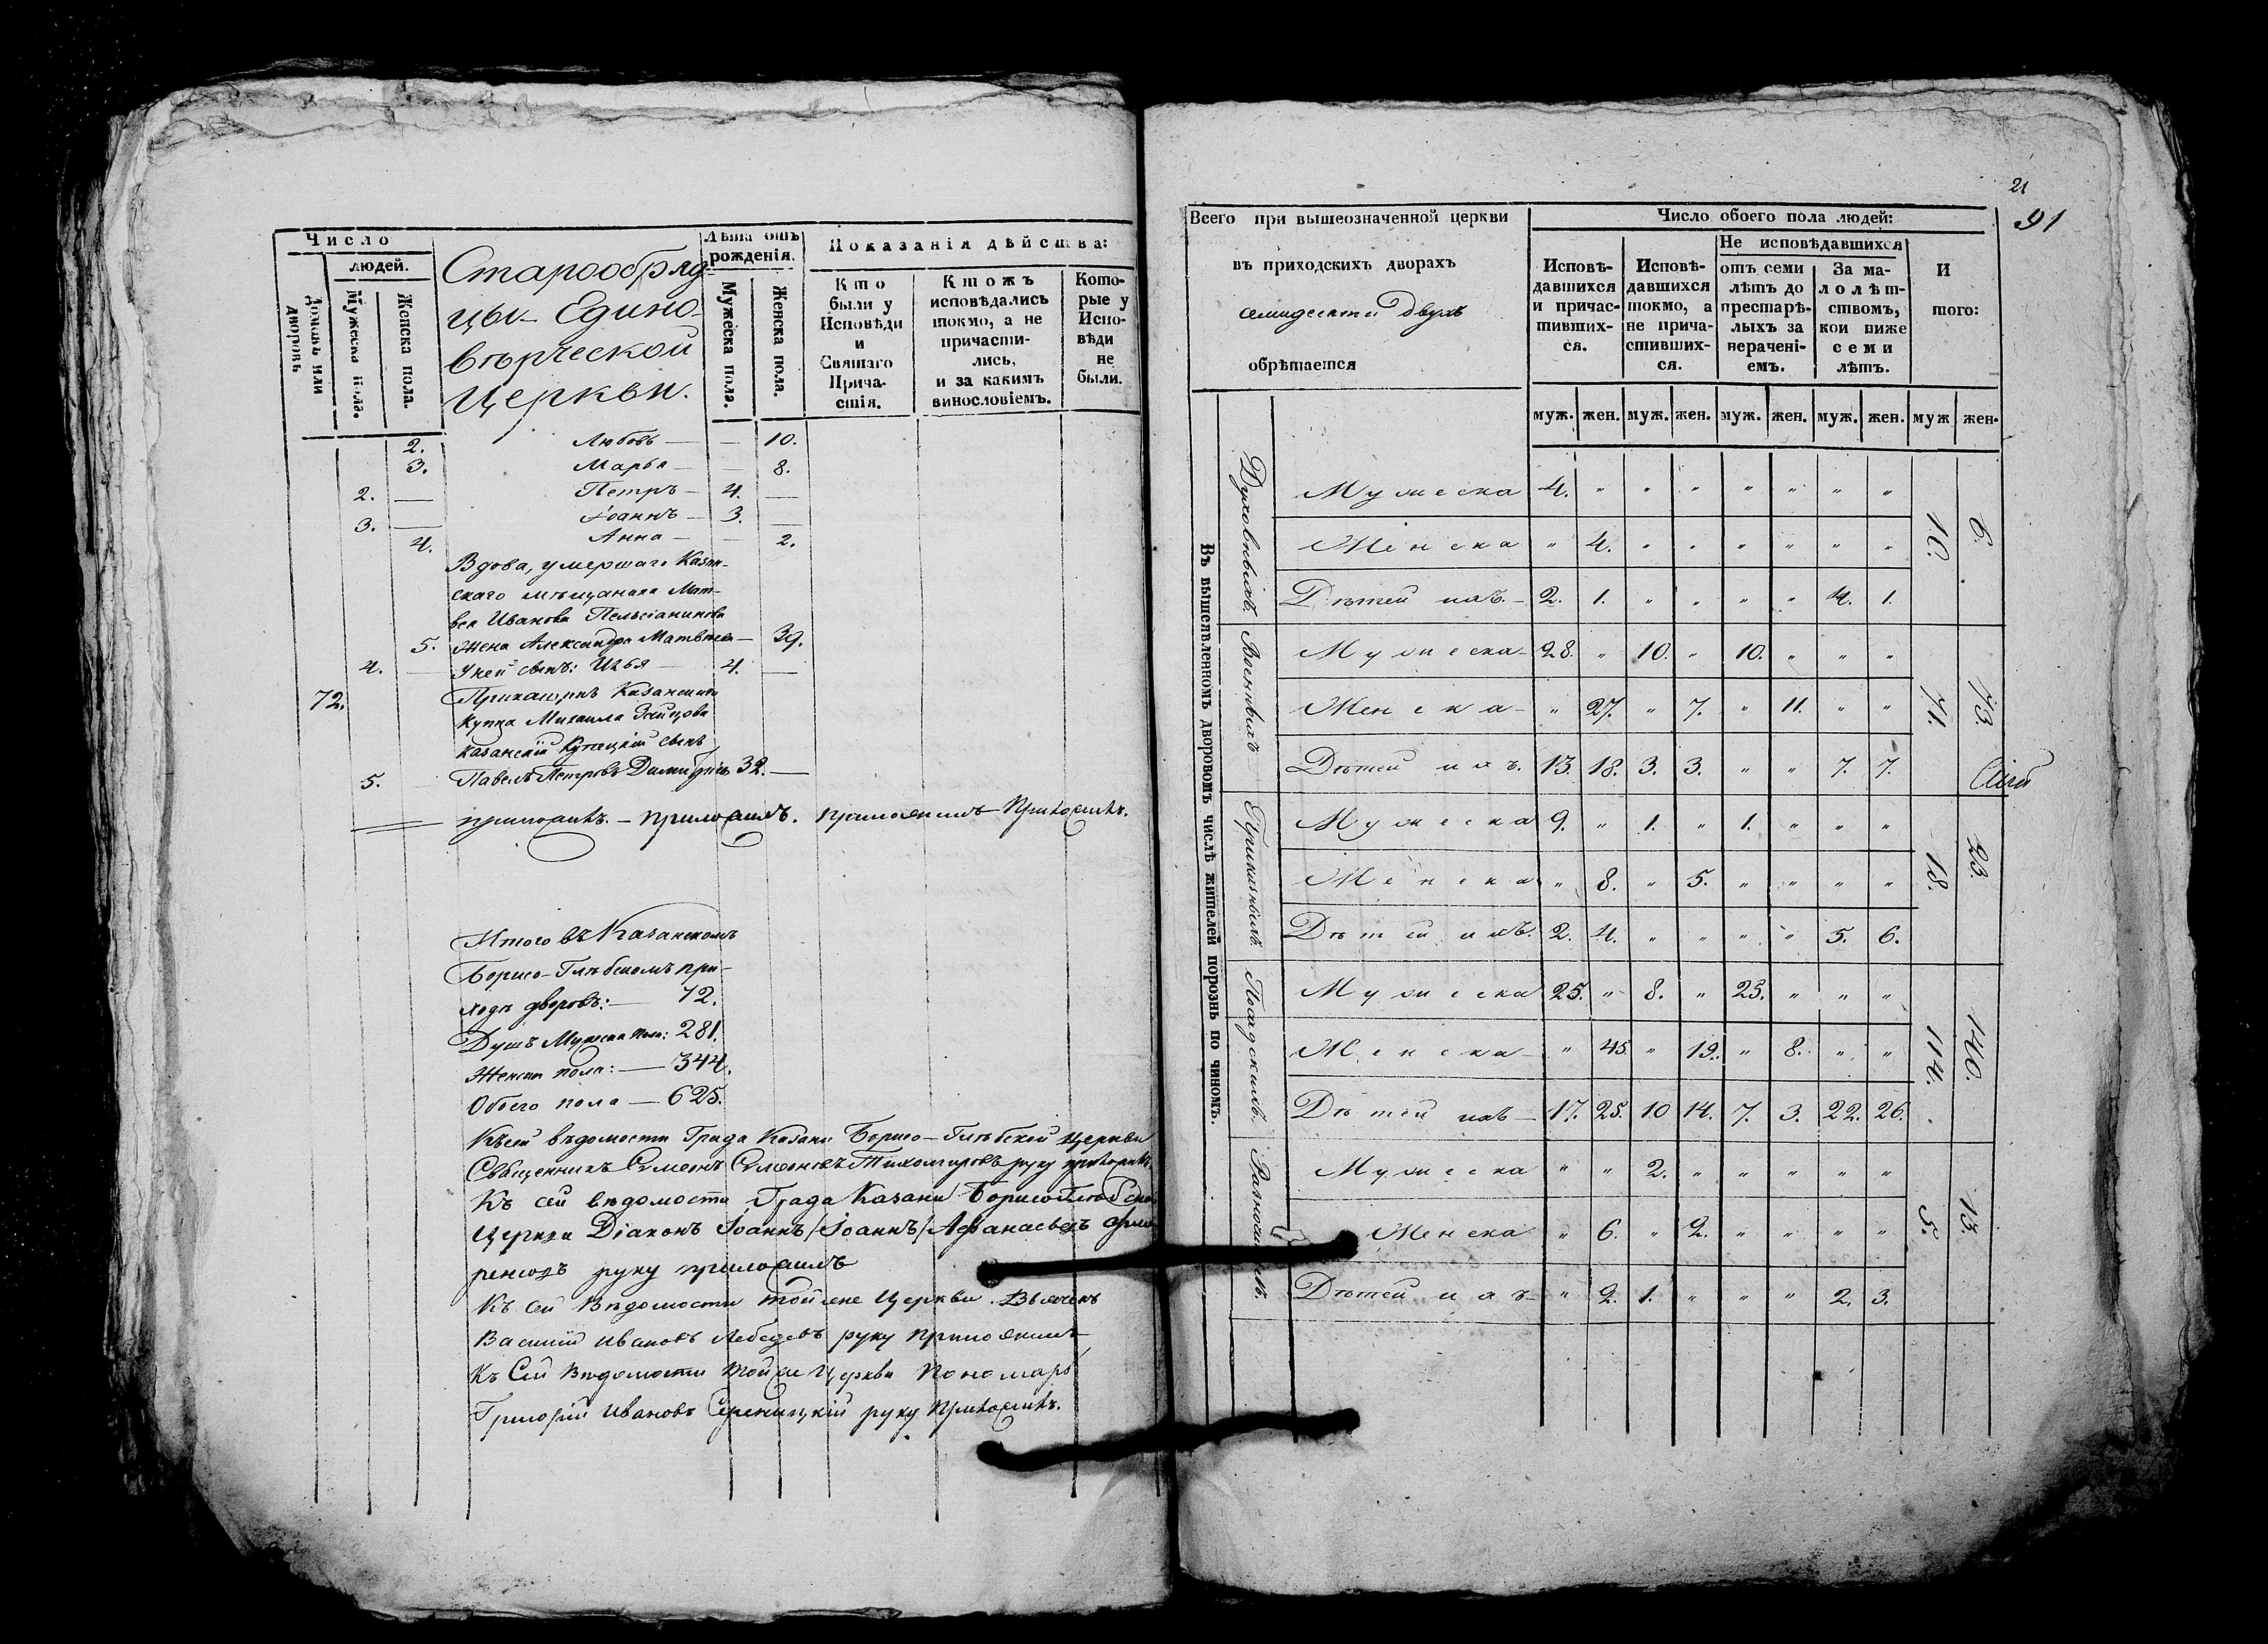 Число
людей.
Домовъ или дворовъ
Мужеска пола.
Женска пола.
Старообряд-
цы Едино-
вѣрческой
Церкви.
Лѣта отъ
рожденія.
Мужеска пола.
Женска пола.
Показанія дѣйства:
Кто
были у
Исповѣди
и
Святаго
Прича-
стія.
Ктожъ
исповѣдались
токмо, а не
причасти-
лись,
и за какимъ
винословіемъ.
Кото-
рые у
Испо-
вѣди
не
были.
2. Любовь — — 10.
3. Марья — — 8.
2. — Петръ — 4. —
3. — Іоаннъ — 3. —
4. Анна — — 2.
Вдова, умершаго Казан-
скаго мѣщанина Мат-
вея Иванова
5. Жена Александра Матвѣева — 39.
4. — У ней сынъ: Илья — 4. —
72. Прикащикъ Казанскаго
Купца Михаила Зайцова
Казанскій Купецкій сынъ
5. Павелъ Петровъ 32. —
приложилъ. — приложилъ. приложилъ — Приложилъ.
Итого въ Казанскомъ
Борисо-Глѣбскомъ при-
ходѣ дворовъ: — 72.
Душъ Мужеска пола: 281.
Женска пола: — 344.
Обоего пола — 625.
Къ сей вѣдомости Града Казани Борисо-Глѣбской Церкви
Священникъ Симеонъ Симеоновъ Тихомировъ руку приложилъ.
Къ сей вѣдомости Града Казани Борисоглѣбской
Церкви Діаконъ Іоаннъ /Іоаннъ/ Аѳанасьевъ
руку приложилъ
Къ сей Вѣдомости той же Церкви Дьячекъ
Василій Ивановъ Лебедевъ руку приложилъ
Къ Сей Вѣдомости той же Церкви Пономарь
Григорій Ивановъ руку Приложилъ.
21
91
Всего при вышеозначенной церкви
въ приходскихъ дворахъ
семидесяти двухъ
обрѣтается
Число обоего пола людей:
Исповѣ-
давшихся
и причас-
тивших-
ся.
Исповѣ-
давшихся
токмо, а
не прича-
стивших-
ся.
Не исповѣдавшихся
отъ семи
лѣтъ до
престарѣ-
лыхъ за
нерачені-
емъ.
За ма-
лолѣт-
ствомъ,
кои ниже
семи
лѣтъ.
И
того:
муж. жен. муж. жен. муж. жен. муж. жен. муж жен.
Въ вышеявленномъ дворовомъ числѣ жителей порознь по чиномъ.
Духовныхъ.
Мужеска 4. " " " " " " "
Женска " 4. " " " " " "
Дѣтей ихъ. 2. 1. " " " " 4. 1.
10. 6.
Военныхъ
Мужеска 28. " 10. " 10. " " "
Женска " 27. " 7. " 11. " "
Дѣтей ихъ. 13. 18. 3. 3. " " 7. 7.
71. 73.
Приказныхъ.
Мужеска 9. " 1. " 1. " " "
Женска " 8. " 5. " " " "
Дѣтей ихъ. 2. 4. " " " " 5. 6.
18. 23.
Посадскихъ.
Мужеска 25. " 8. " 25. " " "
Женска " 45. " 19. " 8. " "
Дѣтей ихъ 17. 25. 10 14. 7. 3. 22. 26.
114. 140.
Мужеска " " 2. " " " " "
Женска " 6. " 2. " " " "
Дѣтей ихъ " 2. 1. " " " 2. 3.
5. 13.